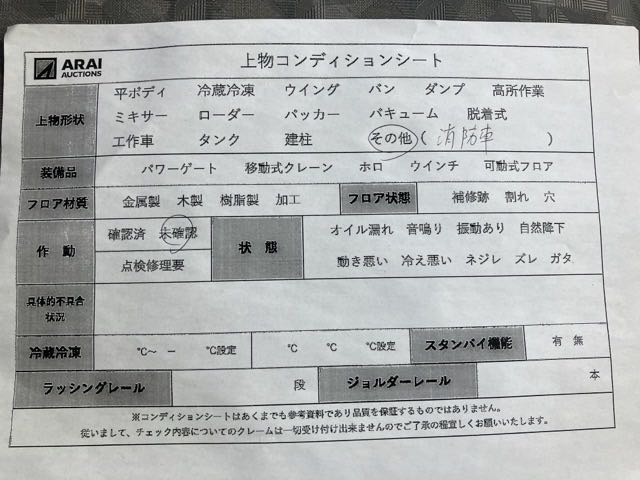 ARAI
AUCTIONS
上物コンディションシート
上物形状
平ボディ 冷蔵冷凍 ウイング バン ダンプ 高所作業
ミキサー ローダー パッカー バキューム 脱着式
工作車 タンク 建柱 その他 ( 消防車 )
装備品 パワーゲート 移動式クレーン ホロ ウインチ 可動式フロア
フロア材質 金属製 木製 樹脂製 加工 フロア状態 補修跡 割れ 穴
作動 確認済 未確認
点検修理要
状態 オイル漏れ 音鳴り 振動あり 自然降下
動き悪い 冷え悪い ネジレ ズレ ガタ
具体的不具合
状況
冷蔵冷凍 ℃～ ー ℃設定 ℃ ℃ ℃設定 スタンバイ機能 有 無
ラッシングレール 段 ジョルダーレール 本
※コンディションシートはあくまでも参考資料であり品質を保証するものではありません。
従いまして、チェック内容についてのクレームは一切受け付け出来ませんのでご了承の程宜しくお願いいたします。